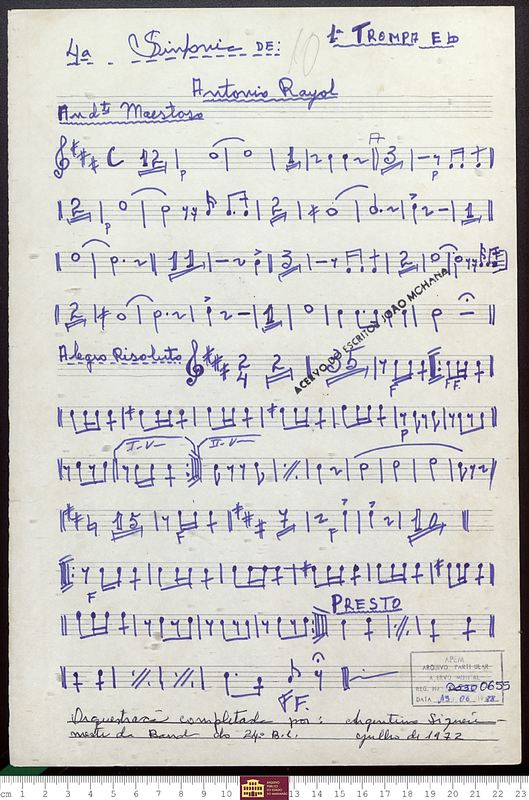 4ª Sinfonia DE: 10 1ª TROMPA Eb
Antonio Rayol
Andte Maestoso
C 12 p 1 3 p
2 p 2 1
11 3 2
2 1
Alegro Risoluto 2/4 2 35 F FF.
ACERVO DO ESCRITOS JOÃO MOHANA
p
I-V II-V
15 F 7 F 10
F
PRESTO
FF.
APEM
ARQUIVO PARTICULAR
ACERVO MUSICAL
REG. Nº 0655
DATA 19 06 88
Orquestração completada por: Argentino
mestre da Band do 24º B.C. julho de 1972
cm 1 2 3 4 5 6 7 8 9 10 11 12 13 14 15 16 17 18 19 20 21 22 23